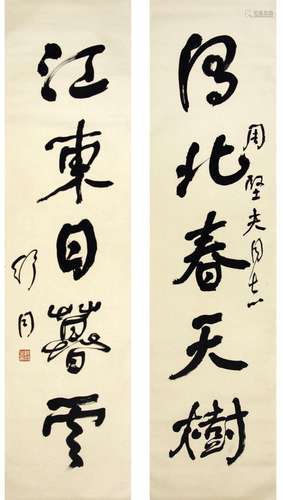 渭北春天樹
周堅夫同志
江東日暮雲
舒同